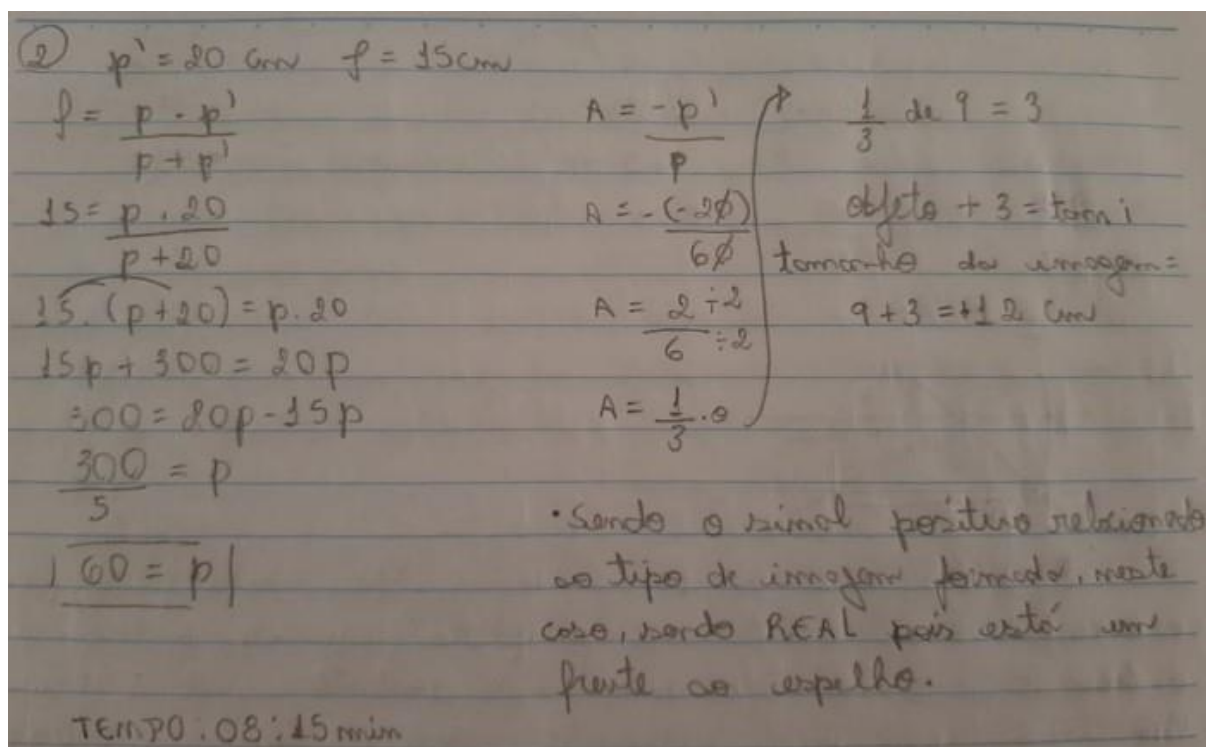 ② p' = 20 cm f = 15cm
f = p . p'
p + p'
15 = p . 20
p + 20
15. (p + 20) = p . 20
15p + 300 = 20p
300 = 20p - 15p
300 = p
5
60 = p
TEMPO : 08 : 15 min
A = - p'
p
A = - (-20)
60
A = 2 ÷2
6 ÷2
A = 1 . o
3
1 de 9 = 3
3
objeto + 3 = tam i
tamanho da imagem =
9 + 3 = +12 cm
• Sendo o sinal positivo relacionado
ao tipo de imagem formada, neste
caso, sendo REAL pois está em
frente ao espelho.